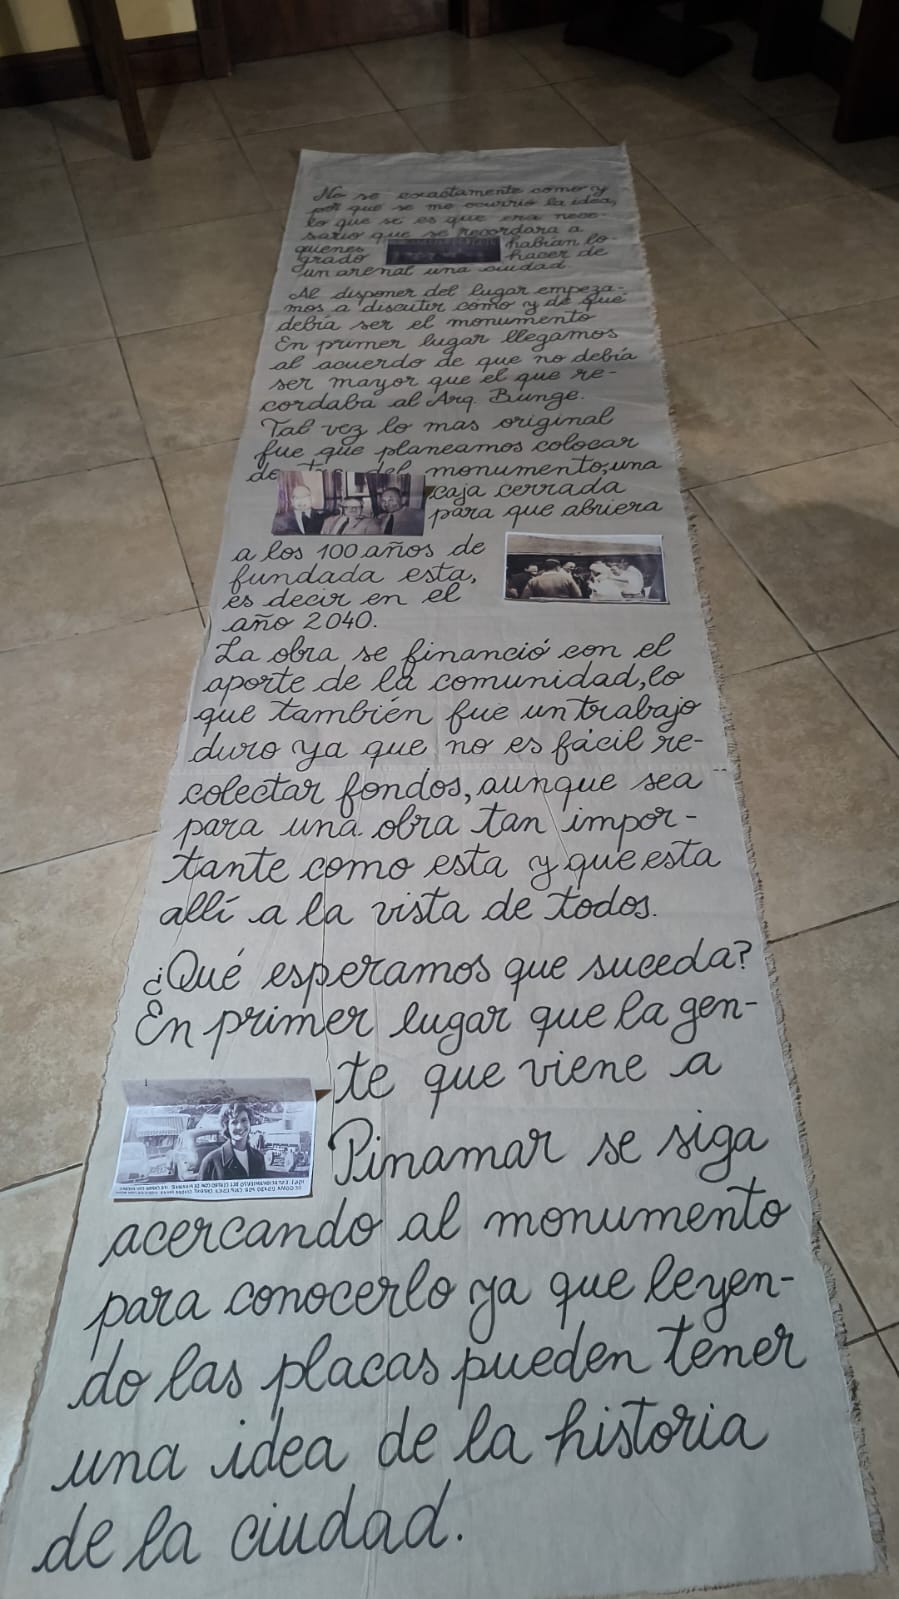 No se exactamente como y
por que se me ocurrió la idea,
lo que se es que era nece-
sario que se recordara a
quienes habían lo-
grado hacer de
un arenal una ciudad
Al disponer del lugar empeza-
mos a discutir cómo y de qué
debía ser el monumento
En primer lugar llegamos
al acuerdo de que no debía
ser mayor que el que re-
cordaba al Arq. Bunge.
Tal vez lo mas original
fue que planeamos colocar
del monumento, una
caja cerrada
para que abriera
a los 100 años de
fundada esta,
es decir en el
año 2040.
La obra se financió con el
aporte de la comunidad, lo
que también fue un trabajo
duro ya que no es fácil re-
colectar fondos, aunque sea
para una obra tan impor-
tante como esta y que esta
allí a la vista de todos.
¿Qué esperamos que suceda?
En primer lugar que la gen-
te que viene a
Pinamar se siga
acercando al monumento
para conocerlo ya que leyen-
do las placas pueden tener
una idea de la historia
de la ciudad.